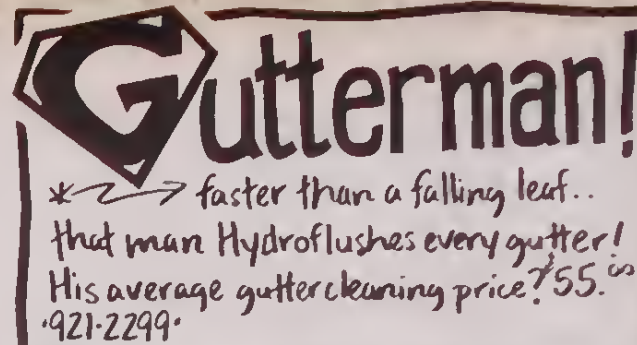 Gutterman!
* faster than a falling leaf..
that man Hydroflushes every gutter!
His average guttercleaning price? $55.00
·921·2299·